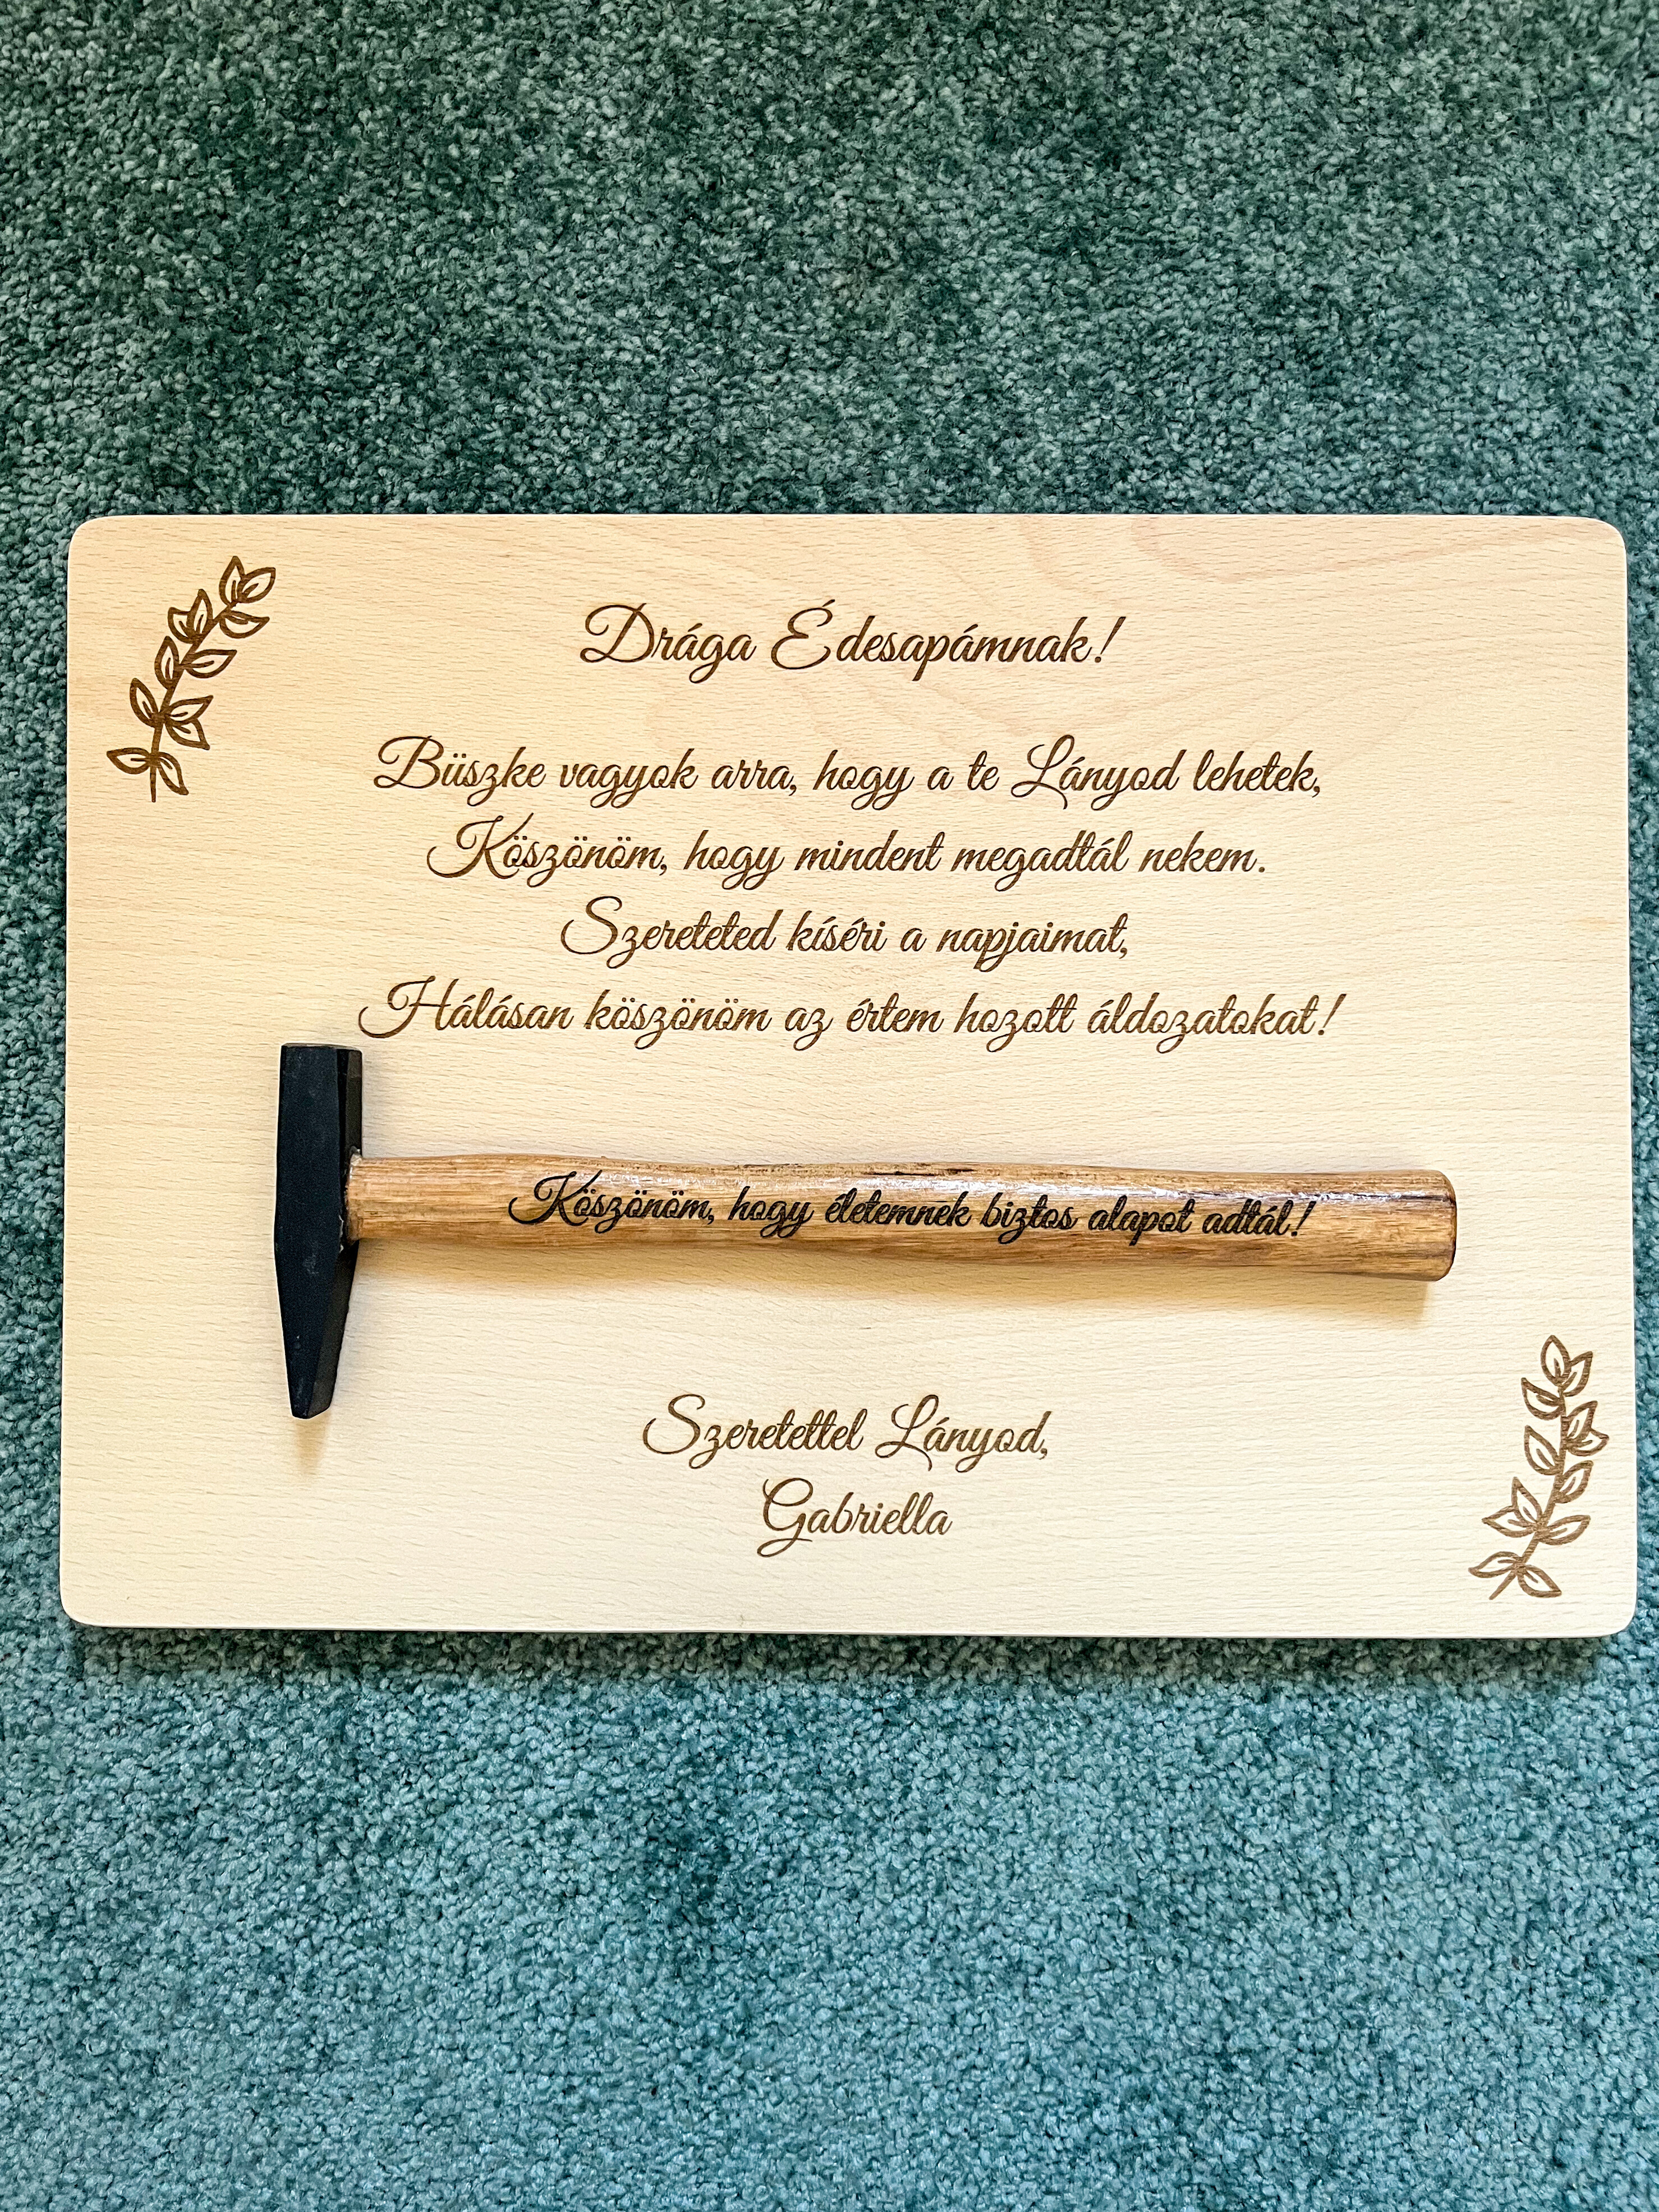 Drága Édesapámnak!
Büszke vagyok arra, hogy a te Lányod lehetek,
Köszönöm, hogy mindent megadtál nekem.
Szereteted kíséri a napjaimat,
Hálásan köszönöm az értem hozott áldozatokat!
Köszönöm, hogy életemnek biztos alapot adtál!
Szeretettel Lányod,
Gabriella